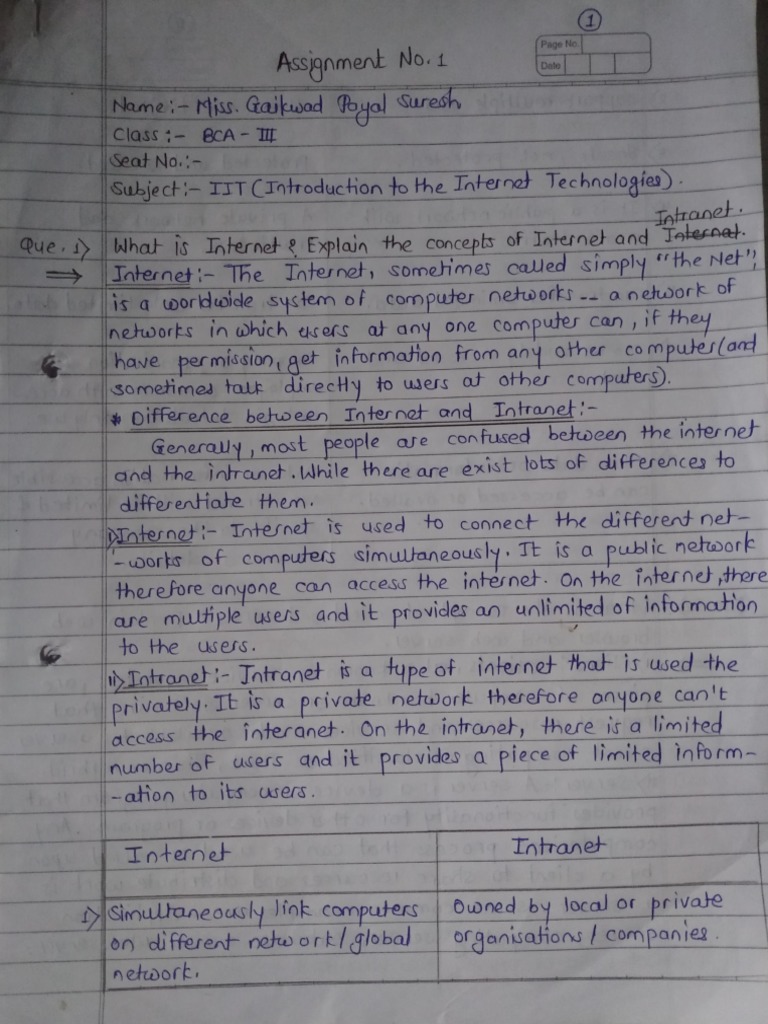 1
Page No.
Date
Assignment No. 1
Name:- Miss. Gaikwad Payal Suresh
Class :- BCA - III
Seat No.:-
Subject:- IIT (Introduction to the Internet Technologies).
Intranet.
Que. 1) What is Internet? Explain the concepts of Internet and Internet.
⇒ Internet:- The Internet, sometimes called simply "the Net",
is a worldwide system of computer networks -- a network of
networks in which users at any one computer can, if they
have permission, get information from any other computer (and
sometimes talk directly to users at other computers).
* Difference between Internet and Intranet:-
Generally, most people are confused between the internet
and the intranet. While there are exist lots of differences to
differentiate them.
i) Internet:- Internet is used to connect the different net-
-works of computers simultaneously. It is a public network
therefore anyone can access the internet. On the internet, there
are multiple users and it provides an unlimited of information
to the users.
ii) Intranet:- Intranet is a type of internet that is used the
privately. It is a private network therefore anyone can't
access the interanet. On the intranet, there is a limited
number of users and it provides a piece of limited inform-
-ation to its users.
Internet Intranet
1) Simultaneously link computers Owned by local or private
on different network/global organisations / companies.
network.